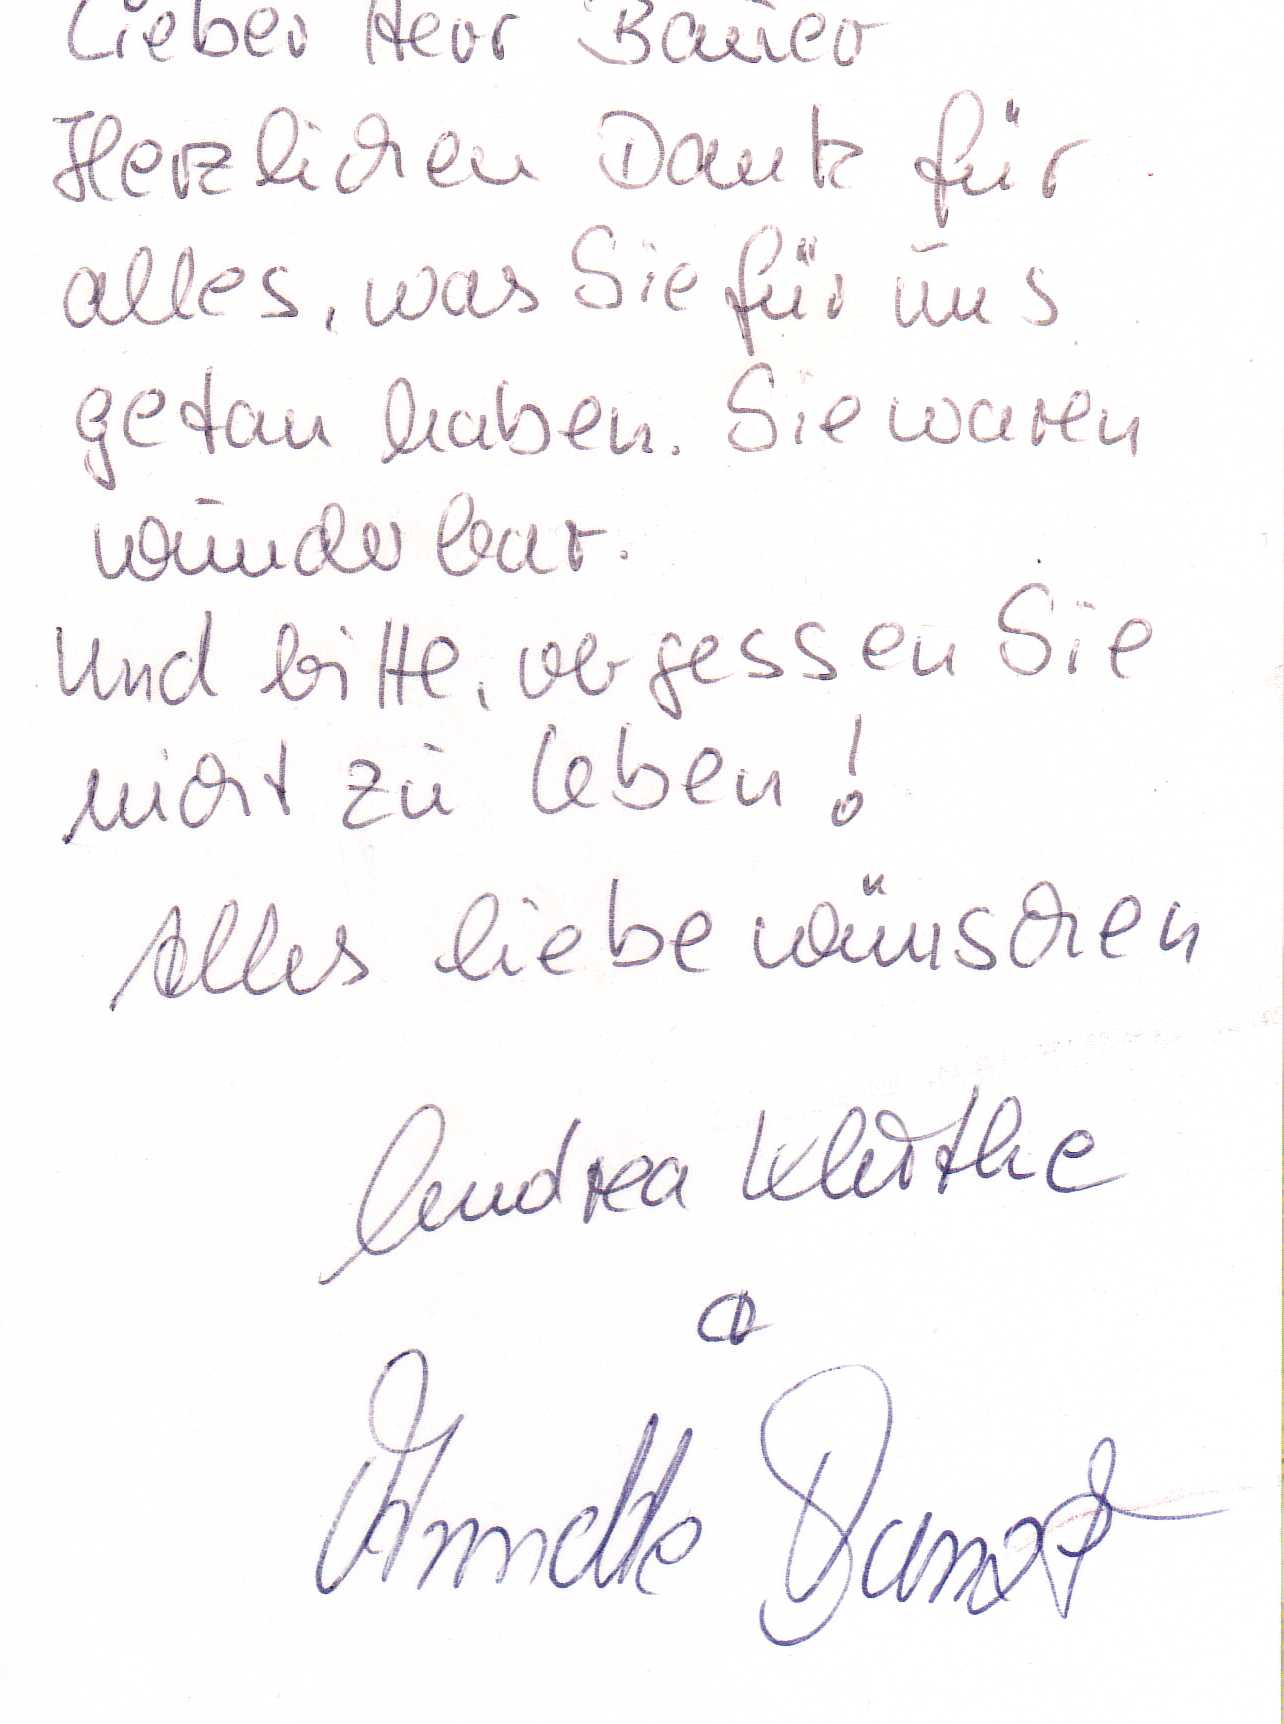 Lieber Herr Bauer
Herzlichen Dank für
alles, was Sie für uns
getan haben. Sie waren
wunderbar.
Und bitte, vergessen Sie
nicht zu leben!
Alles liebe wünschen
Andrea
Annette